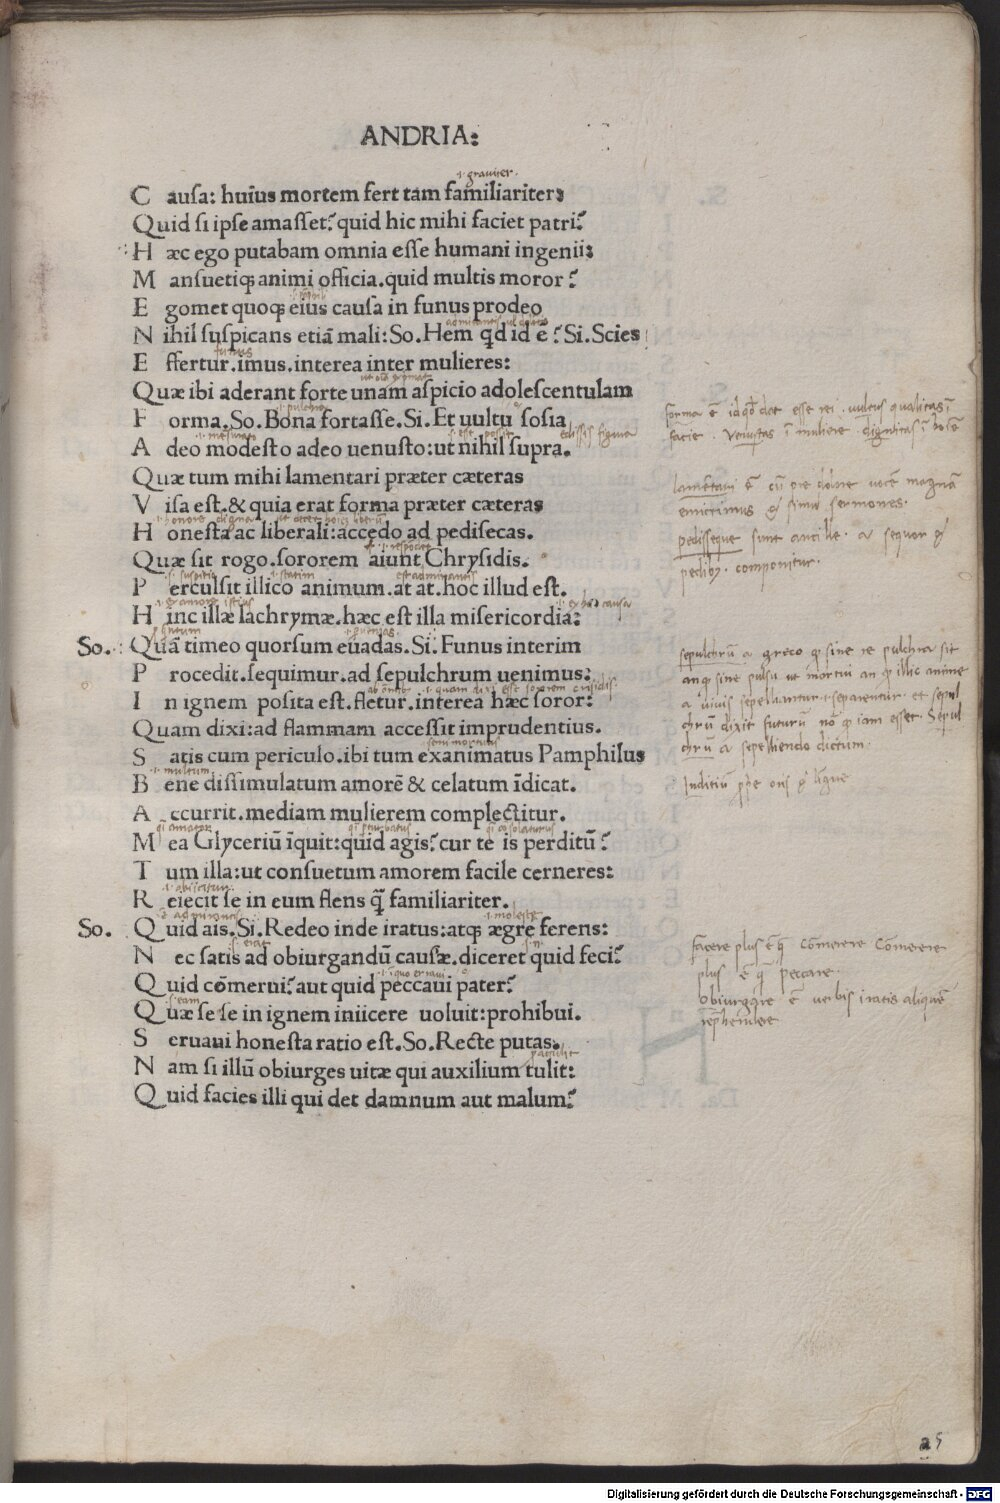 ANDRIA:
.i. graviter.
C ausa: huius mortem fert tam familiariter:
Quid si ipse amasset? quid hic mihi faciet patri?
H æc ego putabam omnia esse humani ingenii:
M ansuetiq; animi officia. quid multis moror?
E gomet quoq; eius causa in funus prodeo
N ihil suspicans etiā mali: So. Hem qd id ē? Si. Scies
funus
E ffertur. imus. interea inter mulieres:
Quæ ibi aderant forte unam aspicio adolescentulam
.i. pulchra
F orma. So. Bona fortasse. Si. Et uultu sosia
A deo modesto adeo uenusto: ut nihil supra.
Quæ tum mihi lamentari præter cæteras
V isa est. & quia erat forma præter cæteras
H onesta ac liberali: accedo ad pedisecas.
Quæ sit rogo. sororem aiunt Chrysidis.
.i. statim
P erculsit illico animum. at at. hoc illud est.
.i. ex amore istius .i. ex hac causa
H inc illæ lachrymæ. hæc est illa misericordia:
So. Quā timeo quorsum euadas. Si. Funus interim
P rocedit. sequimur. ad sepulchrum uenimus:
I n ignem posita est. fletur. interea hæc soror:
Quam dixi: ad flammam accessit imprudentius.
.i. semimortuus
S atis cum periculo. ibi tum exanimatus Pamphilus
.i. multum
B ene dissimulatum amorē & celatum īdicat.
A ccurrit. mediam mulierem complectitur.
M ea Glyceriū īquit: quid agis? cur te is perditū?
T um illa: ut consuetum amorem facile cerneres:
R eiecit se in eum flens q̃ familiariter.
.i. moleste
So. Quid ais. Si. Redeo inde iratus: atq; ægre ferens:
N ec satis ad obiurgandū causæ. diceret quid feci?
Quid cōmerui? aut quid peccaui pater?
s. eam
Quæ se se in ignem iniicere uoluit: prohibui.
S eruaui honesta ratio est. So. Recte putas.
N am si illū obiurges uitæ qui auxilium tulit:
Quid facies illi qui det damnum aut malum?
forma ē id qd dat esse rei. vultus qualitas ī
facie. Venustas ī muliere. dignitas ī
lamētari ē cū
emittimus sermones.
pedisseque sunt ancille. a sequor
pedibus componitur.
sepulchrū a greco sine re pulchra sit
an sine pulsu ut mortui an illic anime
a vivis sepelliantur separentur et sepul
chrū dixit futurū nō iam esset. Sepul
chrū a sepelliendo dictum.
Inditiū
facere plus ē q̃ Comerere Comerere
plus ē q̃ peccare.
obiurgare ē verbis iratis aliquē
rephendere
a 5
Digitalisierung gefördert durch die Deutsche Forschungsgemeinschaft - DFG